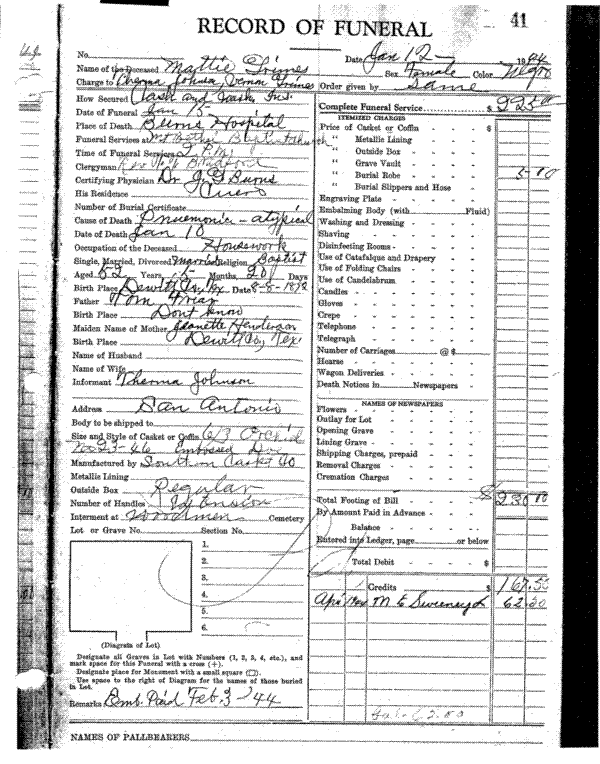 RECORD OF FUNERAL
41
No.
Date Jan 12 - 1944
Name of the Deceased Mattie Grimes
Sex Female Color Negro
Charge to Therma Johnson Vernon Grimes
Order given by Same
How Secured Cash and Cash Ins.
Date of Funeral Jan 13
Place of Death Burns Hospital
Funeral Services at Baptist church
Time of Funeral Services 2 P.M.
Clergyman Rev Bradford
Certifying Physician Dr J G Burns
His Residence Cuero
Number of Burial Certificate
Cause of Death Pnuemonia - atypical
Date of Death Jan 10
Occupation of the Deceased Housework
Single, Married, Divorced Married Religion Baptist
Aged Years Months, Days
Birth Place Dewitt Co, Tex Date 8-8-18
Father Tom Friar
Birth Place Dont know
Maiden Name of Mother Jeanette Henderson
Birth Place Dewitt Co, Tex
Name of Husband
Name of Wife
Informant Therma Johnson
Address San Antonio
Body to be shipped to
Size and Style of Casket or Coffin 6/3 Orchid
No 23-46 Embossed Doe
Manufactured by Southern Casket Co
Metallic Lining
Outside Box Regular
Number of Handles Extension
Interment at Woodmen Cemetery
Lot or Grave No. Section No.
1.
2.
3.
4.
5.
6.
(Diagram of Lot)
Designate all Graves in Lot with Numbers (1, 2, 3, 4, etc.), and
mark space for this Funeral with a cross (+).
Designate place for Monument with a small square (□).
Use space to the right of Diagram for the names of those buried
in Lot.
Remarks Emb. Paid Feb. 3 - 44
NAMES OF PALLBEARERS
Complete Funeral Service $ 225 00
ITEMIZED CHARGES
Price of Casket or Coffin - $
" Metallic Lining
" Outside Box
" Grave Vault
" Burial Robe 5 00
" Burial Slippers and Hose
Engraving Plate
Embalming Body (with Fluid)
Washing and Dressing
Shaving
Disinfecting Rooms
Use of Catafalque and Drapery
Use of Folding Chairs
Use of Candelabrum
Candles
Gloves
Crepe
Telephone
Telegraph
Number of Carriages @ $
Hearse
Wagon Deliveries
Death Notices in Newspapers
NAMES OF NEWSPAPERS
Flowers
Outlay for Lot
Opening Grave
Lining Grave
Shipping Charges, prepaid
Removal Charges
Cremation Charges
Total Footing of Bill $ 230 00
By Amount Paid in Advance
Balance
Entered into Ledger, page or below
Total Debit $
Credits $ 167.50
M E Sweeney 62.50